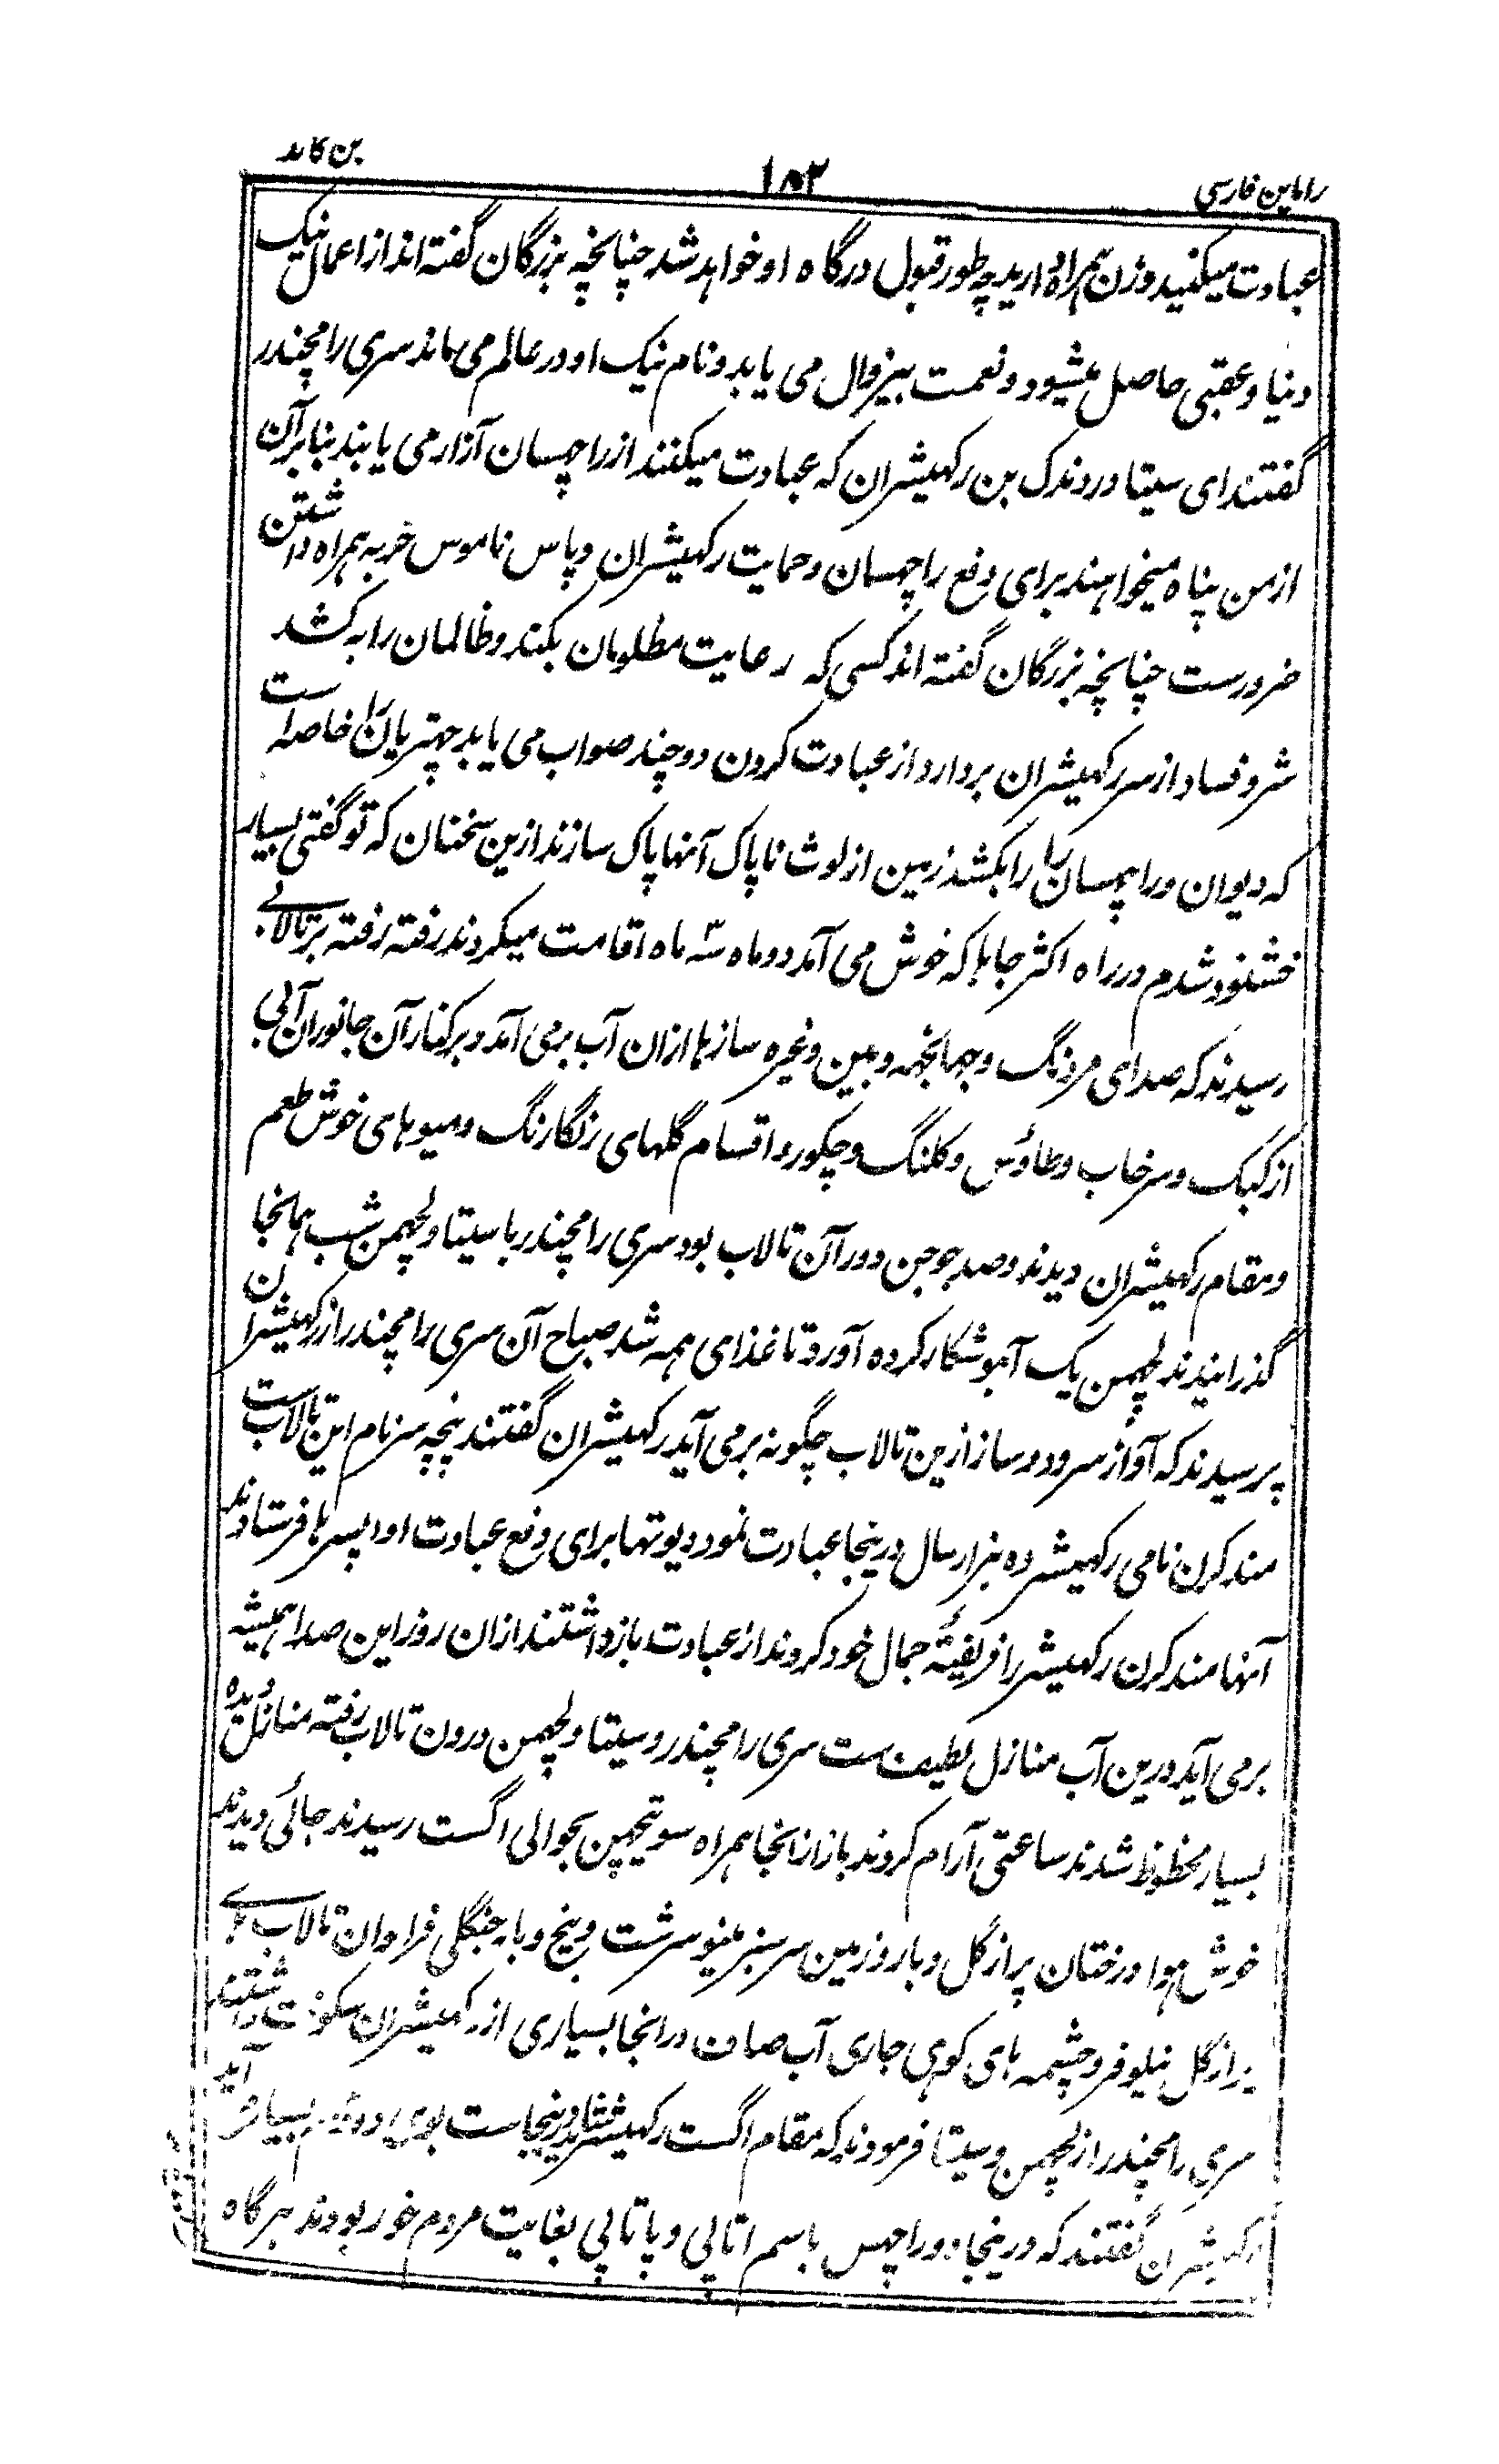 راماین فارسی
۱۵۲
بن کاند
عبادت میکنید وزن همراه دارید چه طور قبول درگاه او خواهد شد چنانچه بزرگان گفته اند از اعمال نیک
دنیا و عقبی حاصل میشود و نعمت بیزوال می یابد و نام نیک او در عالم می ماند سری رامچندر
گفتند ای سیتا در دندک بن رکهیشران که عبادت میکنند از راچهسان آزار می یابند بنابر آن
از من پناه میخواهند برای دفع راچهسان و حمایت رکهیشران و پاس ناموس حربه همراه داشتن
ضرورست چنانچه بزرگان گفته اند کسی که رعایت مظلومان بکند و ظالمان را به کشد
شر و فساد از سر رکهیشران بردارد از عبادت کردن دو چند صواب می یابد چهتریان را خاصه است
که دیوان و راچهسان را بکشد زمین از لوث ناپاک آنها پاک سازند ازین سخنان که تو گفتی بسیار
خشنود شدم در راه اکثر جاها که خوش می آمد دو ماه سه ماه اقامت میکردند رفته رفته بر تالابی
رسیدند که صدای مردنگ و جهانجهه و بین و غیره سازها ازان آب برمی آمد و بر کنار آن جانوران آبی
از کبک و سرخاب و طاؤس و کلنگ و چکور و اقسام گلهای رنگارنگ و میوهای خوش طعم
و مقام رکهیشران دیدند و صد جوجن دور آن تالاب بود سری رامچندر با سیتا و لچهمن شب همانجا
گذرانیدند لچهمن یک آهو شکار کرده آورد تا غذای همه شد صباح آن سری رامچندر از رکهیشران
پرسیدند که آواز سرود و ساز ازین تالاب چگونه برمی آید رکهیشران گفتند پنچه سر نام این تالاب ست
مندکرن نامی رکهیشر ده هزار سال درینجا عبادت نمود دیوتها برای دفع عبادت او اپسرها فرستادند
آنها مندکرن رکهیشر را فریفتهٔ جمال خود کردند از عبادت بازداشتند ازان روز این صدا همیشه
برمی آید درین آب منازل لطیف ست سری رامچندر و سیتا و لچهمن درون تالاب رفته منازل دیده
بسیار محظوظ شدند ساعتی آرام کردند باز از انجا همراه سوتیچهن بحوالی اگست رسیدند جائی دیدند
خوش هوا درختان پر از گل و بار و زمین سرسبز مینو سرشت و بیخ و بار جنگلی فراوان تالاب های
پر از گل نیلوفر و چشمه های کوهی جاری آب صاف در انجا بسیاری از رکهیشران سکونت داشتند
سری رامچندر از لچهمن و سیتا فرمودند که مقام اگست رکهیشر شاید درینجاست بوی دود بسیار می آید
رکهیشران گفتند که درینجا دو راچهس باسم اتاپی و پاتاپی بغایت مردم خور بودند هرگاه